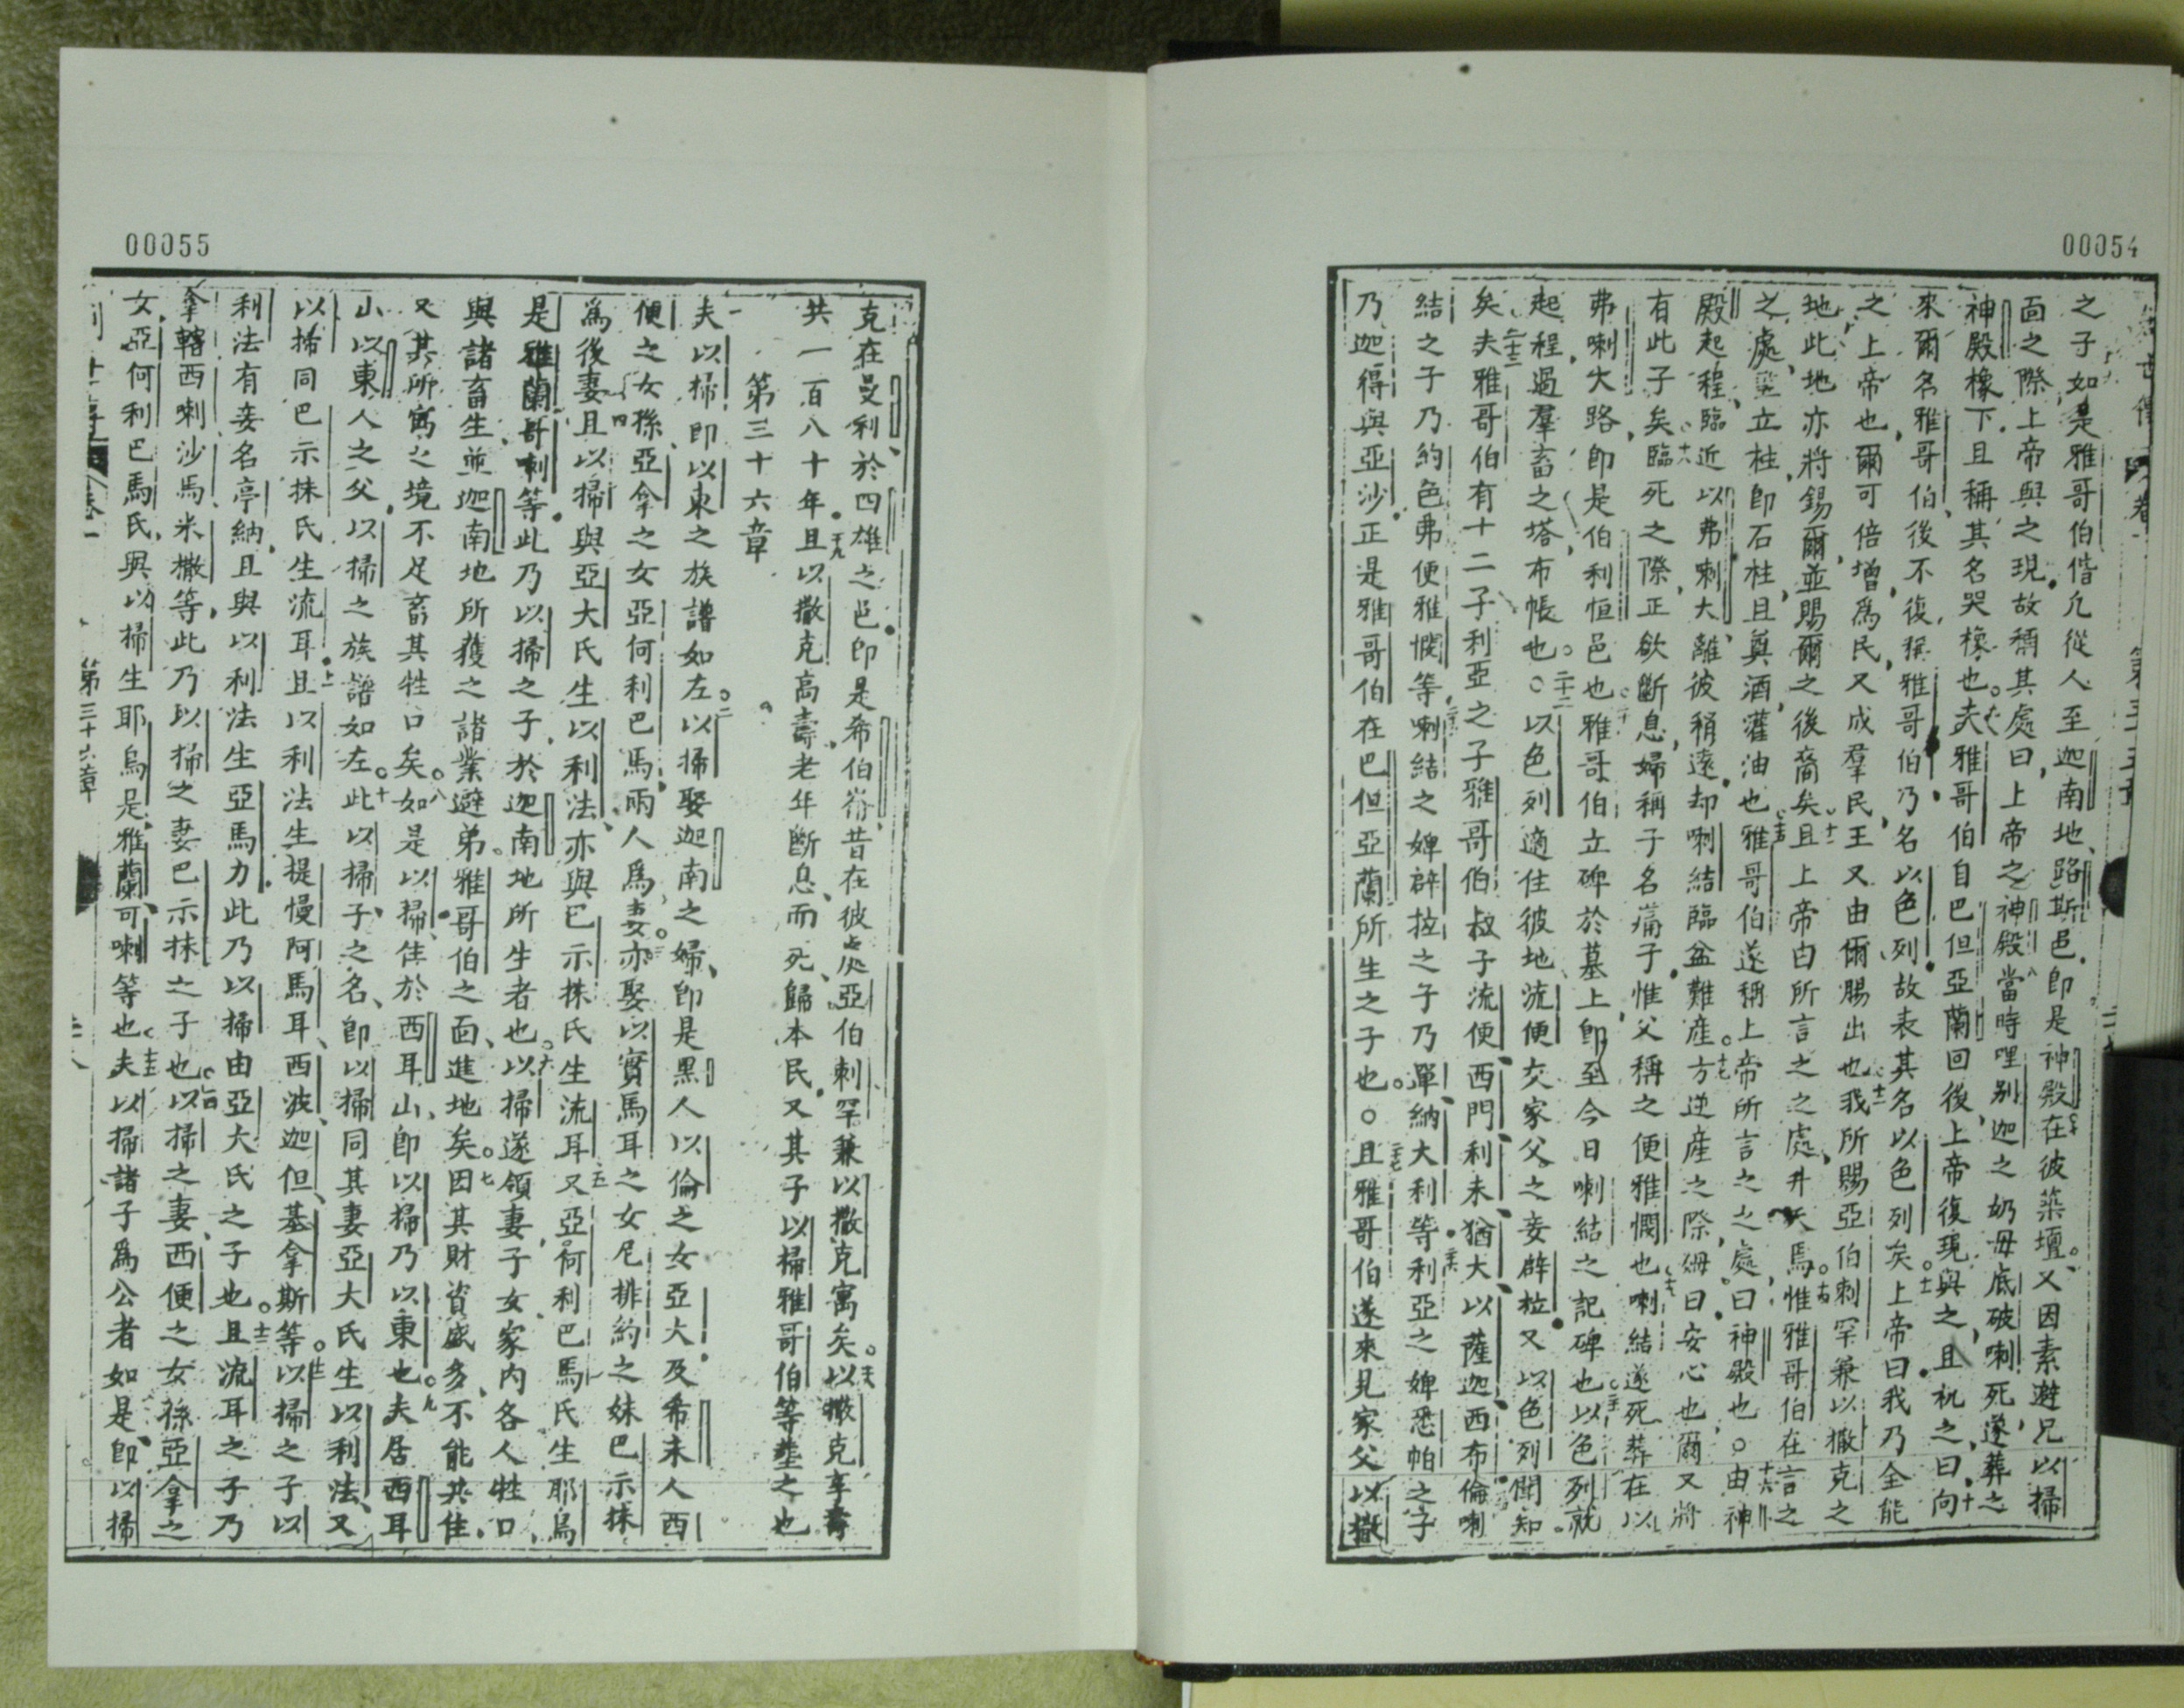 00054
之子如是雅哥伯偕凢從人至迦南地路斯邑即是神殿在彼築壇又因素避兄以掃
面之際上帝與之現故稱其處曰上帝之神殿當時哩別迦之奶母底破喇死遂葬之
神殿橡下且稱其名哭橡也夫雅哥伯自巴但亞蘭回後上帝復現與之且祝之曰向
來爾名雅哥伯後不復稱雅哥伯乃名以色列故表其名以色列矣上帝曰我乃全能
之上帝也爾可倍增為民又成羣民王又由爾賜出也我所賜亞伯剌罕兼以撒克之
地此地亦將錫爾並賜爾之後裔矣且上帝由所言之之處升天焉惟雅哥伯在言之
之處竪立柱即石柱且奠酒灌油也雅哥伯遂稱上帝所言之之處曰神殿也○由神
殿起程臨近以弗喇大離彼稍遠却喇結臨盆難產方逆產之際㛐曰安心也爾又將
有此子矣臨死之際正欲斷息婦稱子名痛子惟父稱之便雅憫也喇結遂死葬在以
弗喇大路即是伯利恒邑也雅哥伯立碑於墓上即至今日喇結之記碑也以色列就
起程過羣畜之塔布帳也○以色列適住彼地流便交家父之妾辟拉又以色列聞知
矣夫雅哥伯有十二子利亞之子雅哥伯叔子流便西門利未猶大以薩迦西布倫喇
結之子乃約色弗便雅憫等喇結之婢辟拉之子乃單納大利等利亞之婢悉帕之子
乃迦得與亞沙正是雅哥伯在巴但亞蘭所生之子也○且雅哥伯遂來見家父以撒
00055
克在曼利於四雄之邑即是希伯崙昔在彼處亞伯剌罕兼以撒克寓矣以撒克享壽
共一百八十年且以撒克高壽老年斷息而死歸本民又其子以掃雅哥伯等塟之也
第三十六章
夫以掃即以東之族譜如左以掃娶迦南之婦即是黑人以倫之女亞大及希未人西
便之女孫亞拿之女亞何利巴馬兩人為妻亦娶以實馬耳之女尼排約之妹巴示抹
為後妻且以掃與亞大氏生以利法亦與巴示抹氏生流耳又亞何利巴馬氏生耶烏
是雅蘭哥喇等此乃以掃之子於迦南地所生者也以掃遂領妻子女家內各人牲口
與諸畜生並迦南地所獲之諸業避弟雅哥伯之面進地矣因其財資盛多不能共住
又其所寓之境不足畜其牲口矣如是以掃住於西耳山即以掃乃以東也夫居西耳
山以東人之父以掃之族譜如左此以掃子之名即以掃同其妻亞大氏生以利法又
以掃同巴示抹氏生流耳且以利法生提慢阿馬耳西波迦但基拿斯等以掃之子以
利法有妾名亭納且與以利法生亞馬力此乃以掃由亞大氏之子也且流耳之子乃
拿轄西喇沙馬米撒等此乃以掃之妻巴示抹之子也以掃之妻西便之女孫亞拿之
女亞何利巴馬氏與以掃生耶烏是雅蘭可喇等也夫以掃諸子為公者如是即以掃
第三十六章